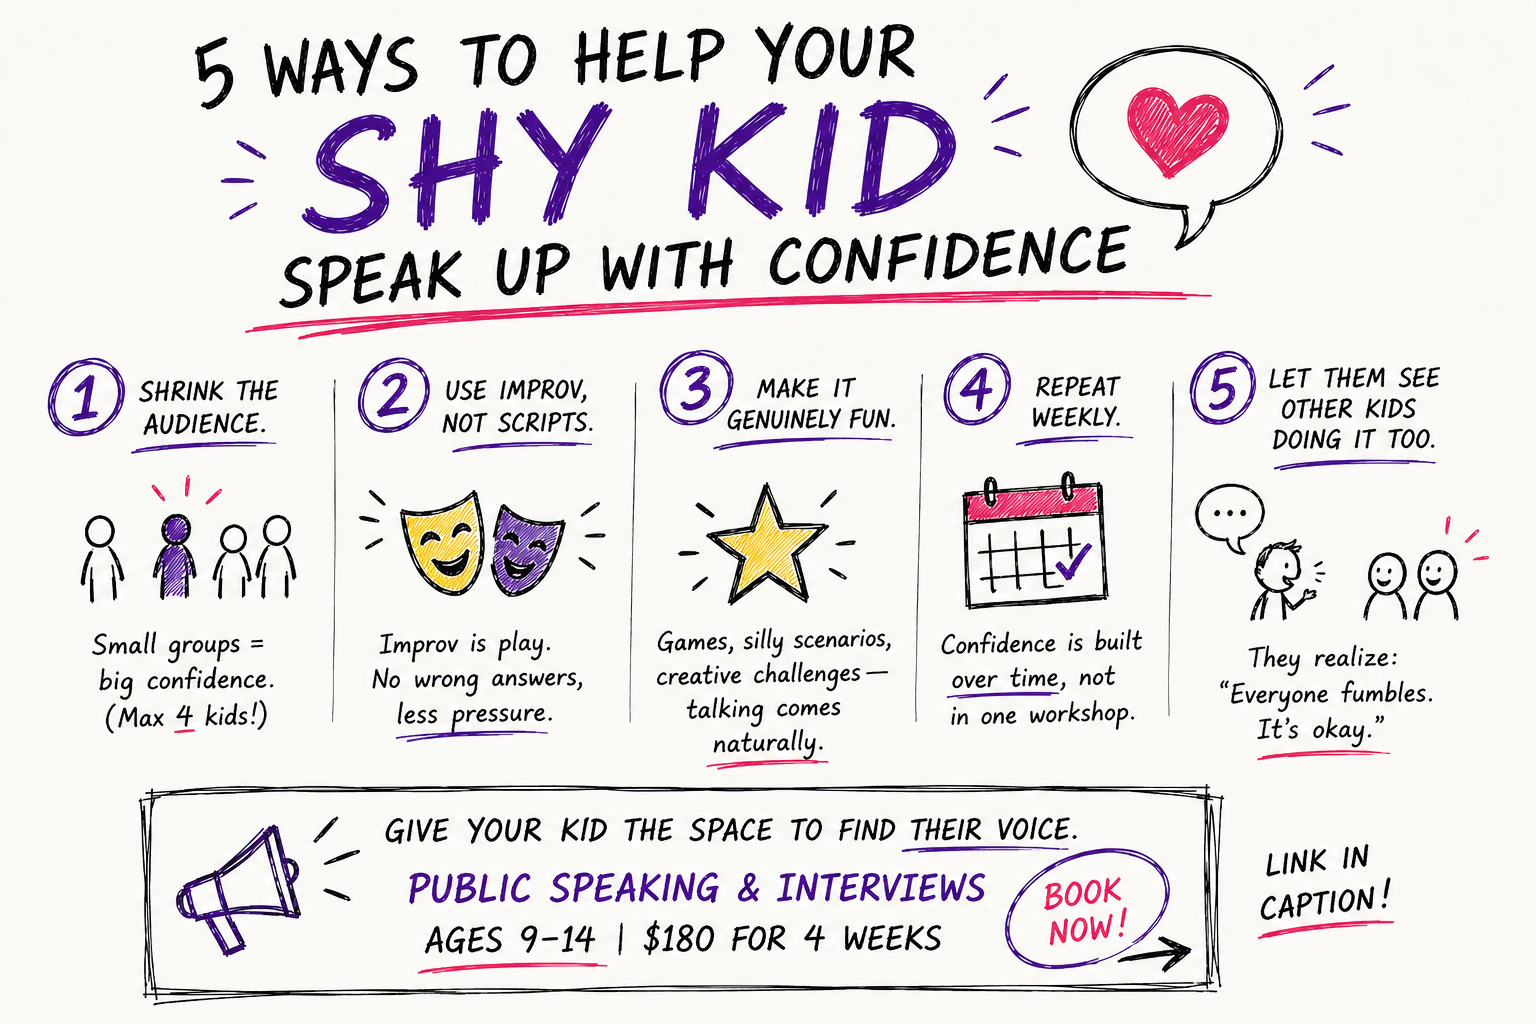 5 WAYS TO HELP YOUR
SHY KID
SPEAK UP WITH CONFIDENCE
1
SHRINK THE
AUDIENCE.
Small groups =
big confidence.
(Max 4 kids!)
2
USE IMPROV,
NOT SCRIPTS.
Improv is play.
No wrong answers,
less pressure.
3
MAKE IT
GENUINELY FUN.
Games, silly scenarios,
creative challenges—
talking comes
naturally.
4
REPEAT
WEEKLY.
Confidence is built
over time, not
in one workshop.
5
LET THEM SEE
OTHER KIDS
DOING IT TOO.
They realize:
“Everyone fumbles.
It’s okay.”
GIVE YOUR KID THE SPACE TO FIND THEIR VOICE.
PUBLIC SPEAKING & INTERVIEWS
AGES 9–14 | $180 FOR 4 WEEKS
BOOK
NOW!
LINK IN
CAPTION!